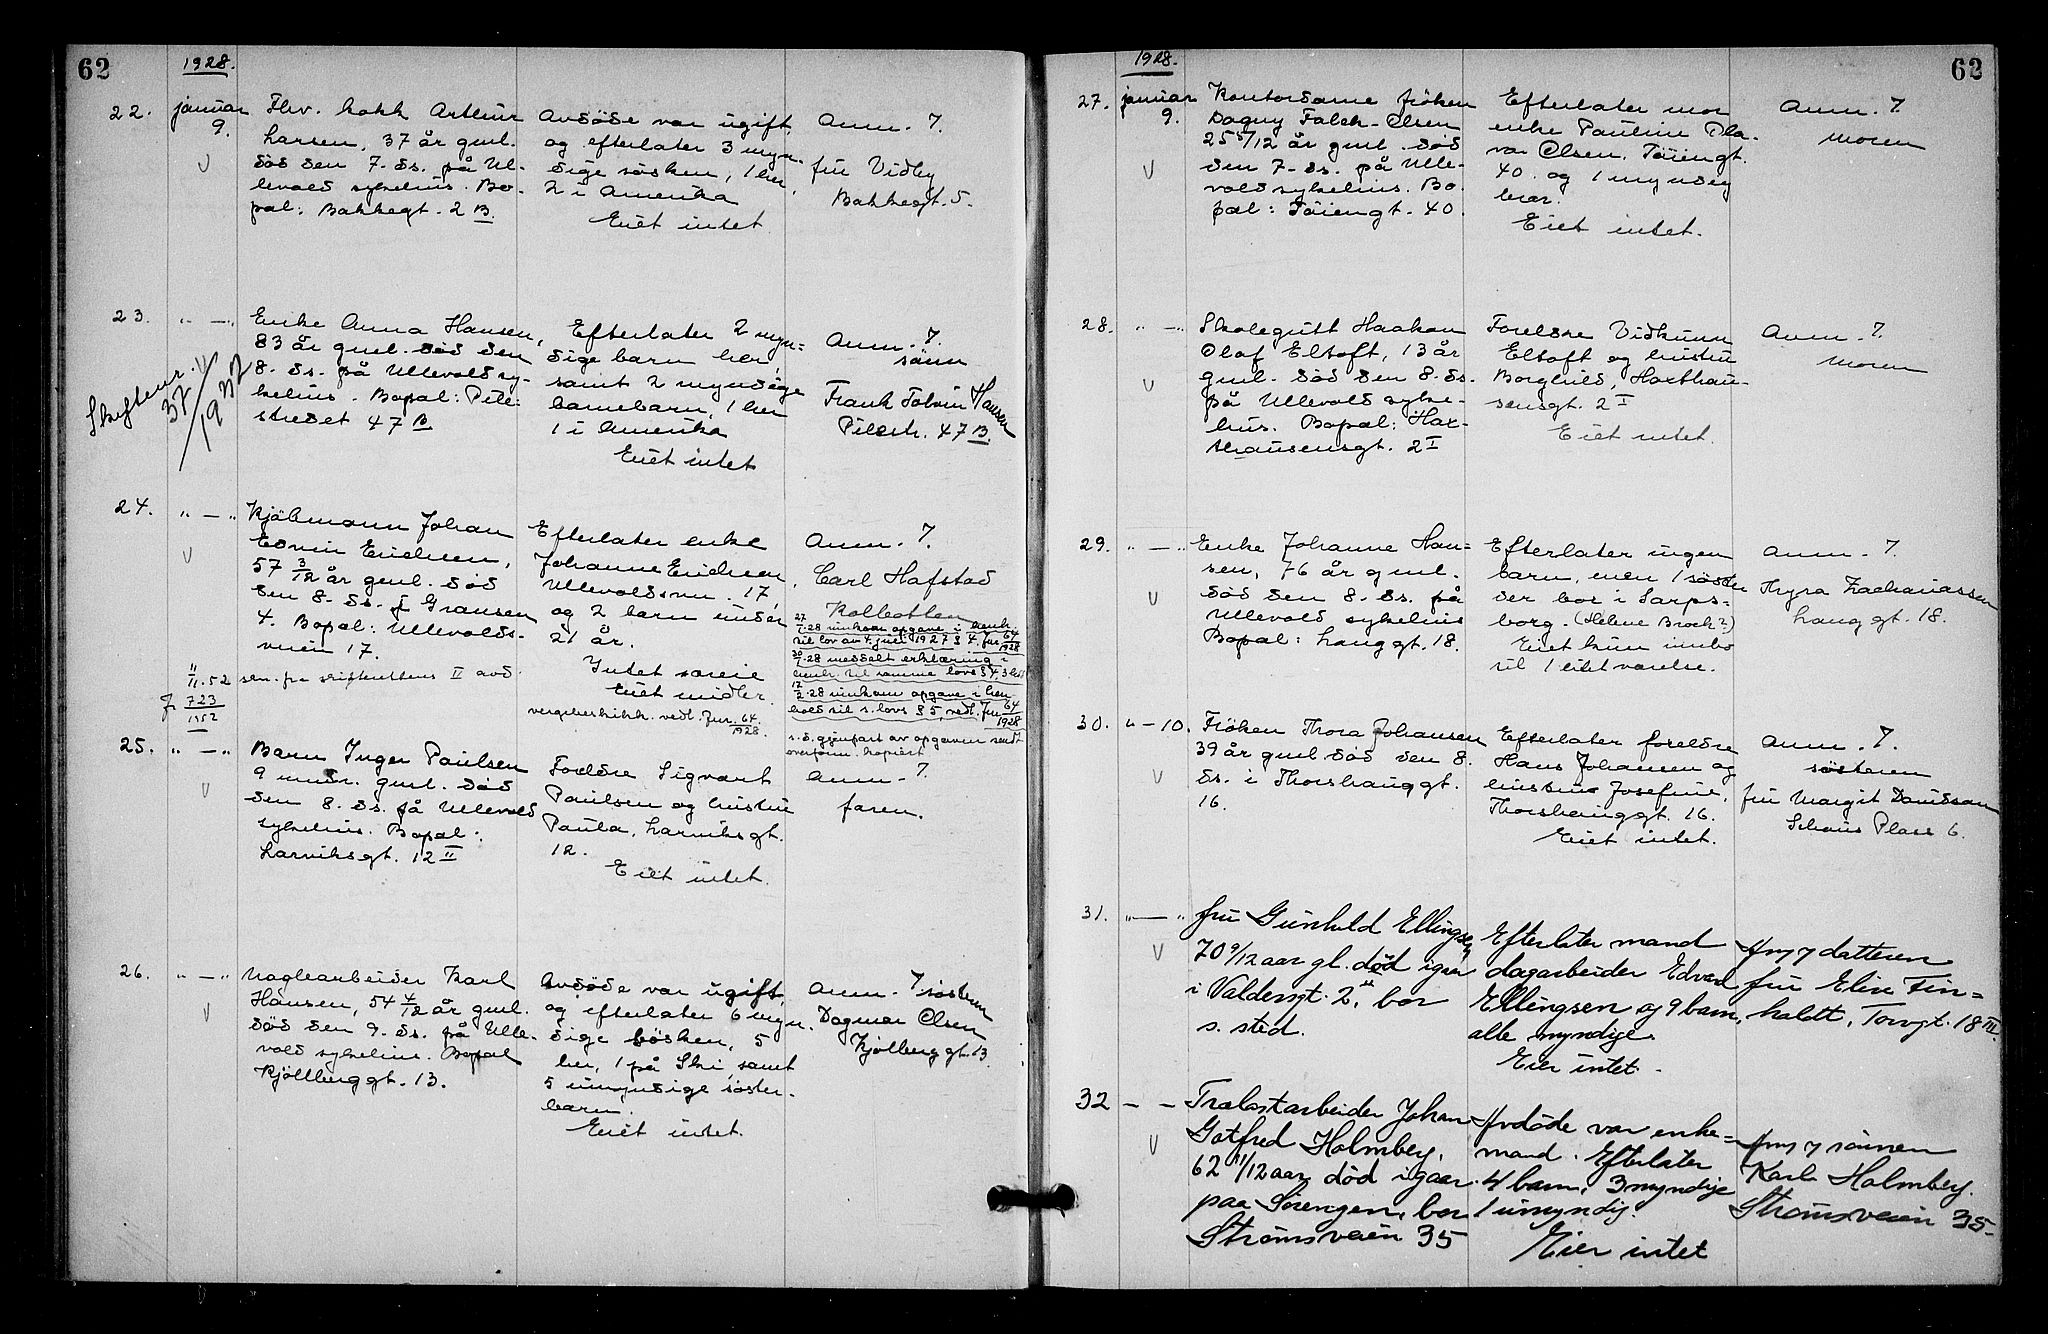 62
1928.
22.
januar
9.
Fhv. kokk Arthur
Larsen, 37 år gml.
död den 7. ds. på Ul-
levold sykehus. Bo-
pæl: Bakkegt. 2 B.
Avdöde var ugift,
og efterlater 3 myn-
dige søsken, 1 her,
2 i Amerika
Eiet intet.
Anm. 7.
fru Vidby
Bakkegt. 5.
23.
" — "
Skiftenr.
37/1932
Enke Anna Hansen,
83 år gml. död den
8. ds. på Ullevold sy-
kehus. Bopæl: Pile-
stredet 47 B.
Efterlater 2 myn-
dige barn her,
samt 2 myndige
barnebarn, 1 her
1 i Amerika
Eiet intet
Anm. 7.
sønn
Frank Tolvin Hansen
Pilestr. 47 B.
24.
" — "
Kjöbmann Johan
Edvin Erichsen,
57 3/12 år gml. död
den 8. ds. i Gransen
4. Bopæl: Ullevolds-
veien 17.
Efterlater enke
Johanne Erichsen,
Ullevoldsvn. 17,
og 2 barn under
21 år.
Intet særeie
Eiet midler.
vergebeskikk. vedl. Jnr. 64/1928.
Anm. 7.
Carl Hafstad
Kolbotten
27/1.28 innkom opgave i henh.
til lov av 4. juni 1927 § 4. Jnr 64/1928
30/1-28 meddelt erklæring i
henh. til samme lovs § 4, 3 ledd
17/2.28 innkom opgave i hen-
hold til s. lovs § 5, vedl. Jnr 64/1928
s. d. gjenpart av opgaven sendt
overform. kopiert
11/11.52 sen. fra skifterettens II avd.
J. 723/1952
25.
" — "
Barn Inger Paulsen
9 mndr. gml. död
den 8. ds. på Ullevold
sykehus. Bopæl:
Larviksgt. 12 II
Foreldre Sigvart
Paulsen og hustru
Paula, Larviksgt.
12.
Eiet intet.
Anm. 7.
faren.
26.
" — "
Naglearbeider Karl
Hansen, 54 4/12 år gml.
död den 9. ds. på Ulle-
vold sykehus. Bopæl
Kjölberggt. 13.
Avdöde var ugift,
og efterlater 6 myn-
dige søsken, 5
her, 1 på Ski, samt
5 umyndige søster-
barn.
Eiet intet.
Anm. 7 søsteren
Dagmar Olsen
Kjölberggt. 13
62
1928.
27.
januar
9.
Kontordame fröken
Dagny Falch-Olsen
25 5/12 år gml. död
den 7. ds. på Ulle-
vold sykehus. Bo-
pæl: Töiengt. 40.
Efterlater mor
enke Pauline Ola-
va Olsen, Töiengt.
40. og 1 myndig
bror.
Eiet intet.
Anm. 7.
moren
28.
" — "
Skolegutt Haakon
Olaf Eltoft, 13 år
gml. död den 8. ds.
på Ullevold syke-
hus. Bopæl: Hax-
thausensgt. 2 I
Foreldre Vidkunn
Eltoft og hustru
Borghild, Haxthau-
sensgt. 2 I
Eiet intet.
Anm. 7.
moren
29.
" — "
Enke Johanne Han-
sen, 76 år gml.
död den 8. ds. på
Ullevold sykehus
Bopæl: Langgt. 18.
Efterlater ingen
barn, men 1 søster
der bor i Sarps-
borg. (Helene Broch?)
Eiet kun innbo
til 1 litet værelse.
Anm. 7.
Thyra Zachariassen
Langgt. 18.
30.
" — 10.
Fröken Thora Johansen
39 år gml död den 8.
ds. i Thorshauggt.
16.
Efterlater foreldre
Hans Johansen og
hustru Josefine,
Thorshauggt. 16.
Eiet intet.
Anm. 7.
søsteren
fru Margit Davidsen
Schous Plass 6.
31.
" — "
fru Gunhild Ellingsen
70 9/12 aar gl. död igaar
i Valdersgt. 2, II bor
s. sted.
Efterlater mand
dagarbeider Edvard
Ellingsen og 9 barn,
alle myndige.
Eier intet.
Anm 7 datteren
fru Elise Fin-
holdt, Torvgt. 18 III.
32
— —
Trælastarbeider Johan
Gotfred Holmbey,
62 11/12 aar, död igaar
paa Sörengen, bor
Strömsveien 35
Avdöde var enke-
mand. Efterlater
4 barn, 3 myndige
1 umyndig.
Eier intet
Anm 7 sönnen
Karl Holmbey.
Strömsveien 35